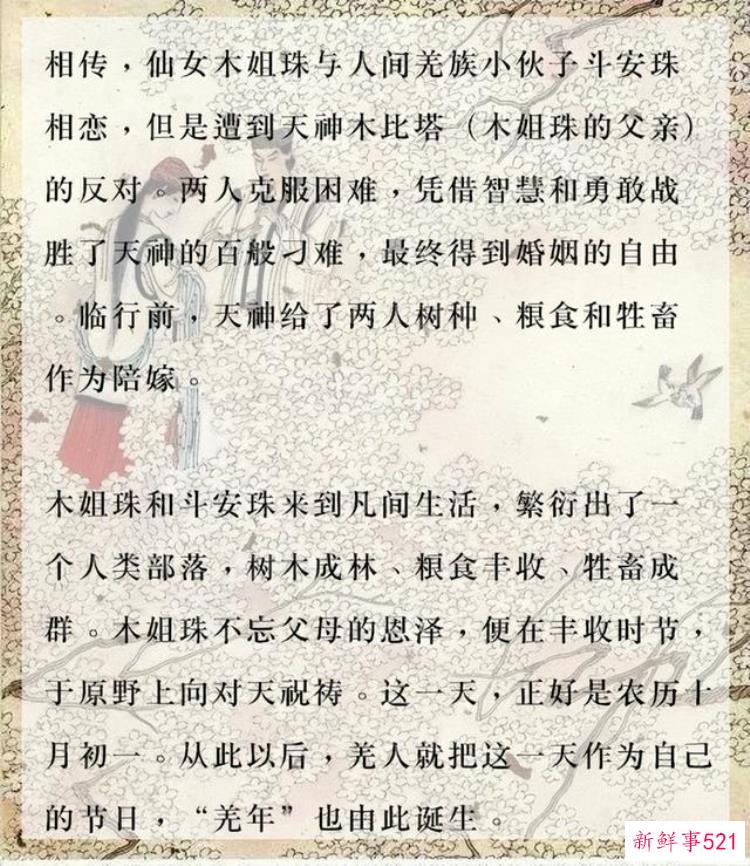 相传，仙女木姐珠与人间羌族小伙子斗安珠
相恋，但是遭到天神木比塔（木姐珠的父亲）
的反对。两人克服困难，凭借智慧和勇敢战
胜了天神的百般刁难，最终得到婚姻的自由
。临行前，天神给了两人树种、粮食和牲畜
作为陪嫁。
木姐珠和斗安珠来到凡间生活，繁衍出了一
个人类部落，树木成林、粮食丰收、牲畜成
群。木姐珠不忘父母的恩泽，便在丰收时节，
于原野上向对天祝祷。这一天，正好是农历十
月初一。从此以后，羌人就把这一天作为自己
的节日，“羌年”也由此诞生。
新鲜事521